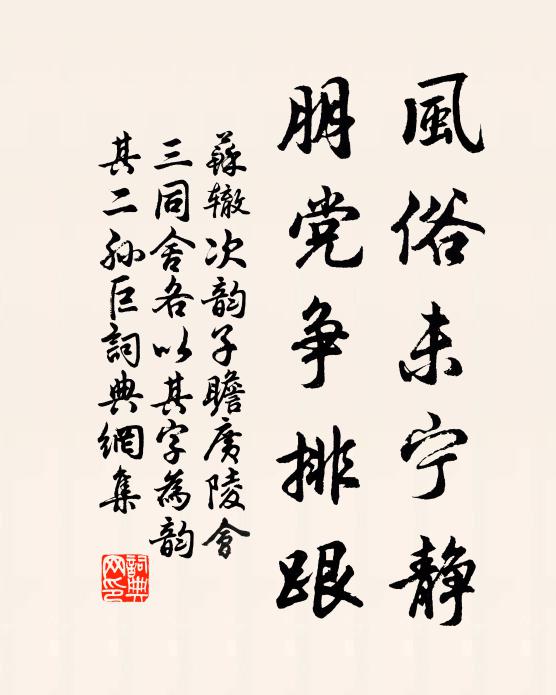 風俗未宁静
朋党争排跟
蘇辙次韵子瞻廣陵會
三同舍各以其字為韵
其二孙巨詞典網集
詞典网印